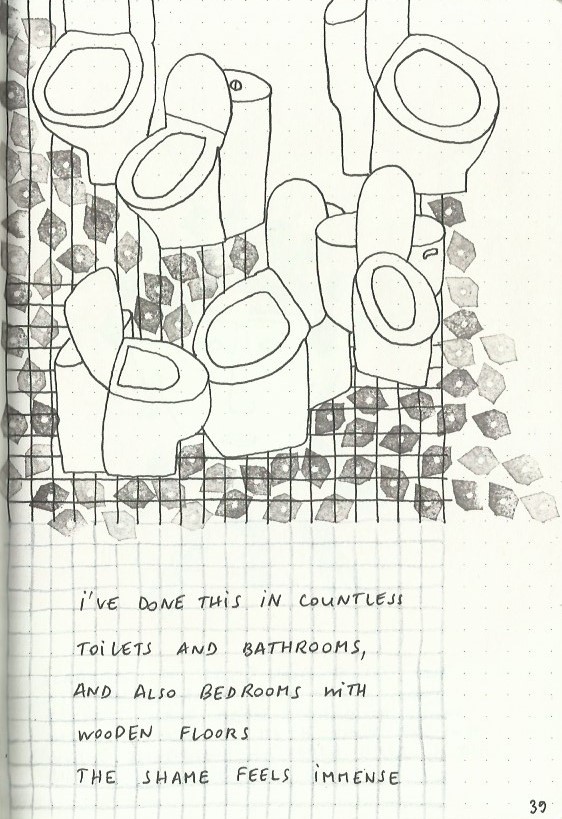 i'VE DONE THiS iN COUNTLESS
TOiLETS AND BATHROOMS,
AND ALSO BEDROOMS WiTH
WOODEN FLOORS
THE SHAME FEELS iMMENSE
39